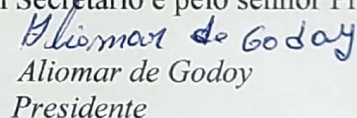 Secretário e pelo senhor
Aliomar de Godoy
Aliomar de Godoy
Presidente